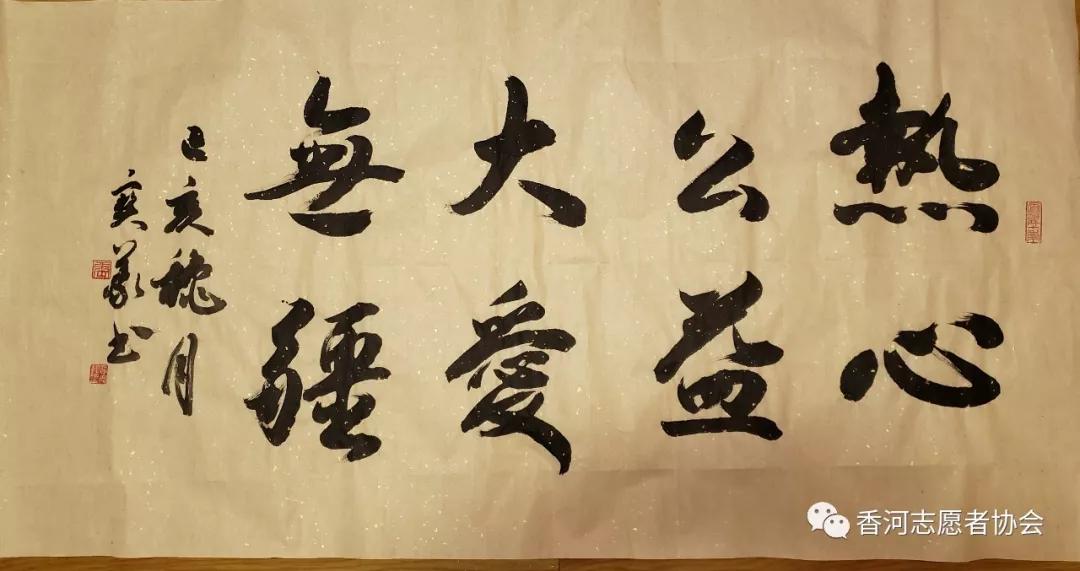 熱心
公益
大愛
無疆
己亥穐月
寅義书
香河志愿者协会